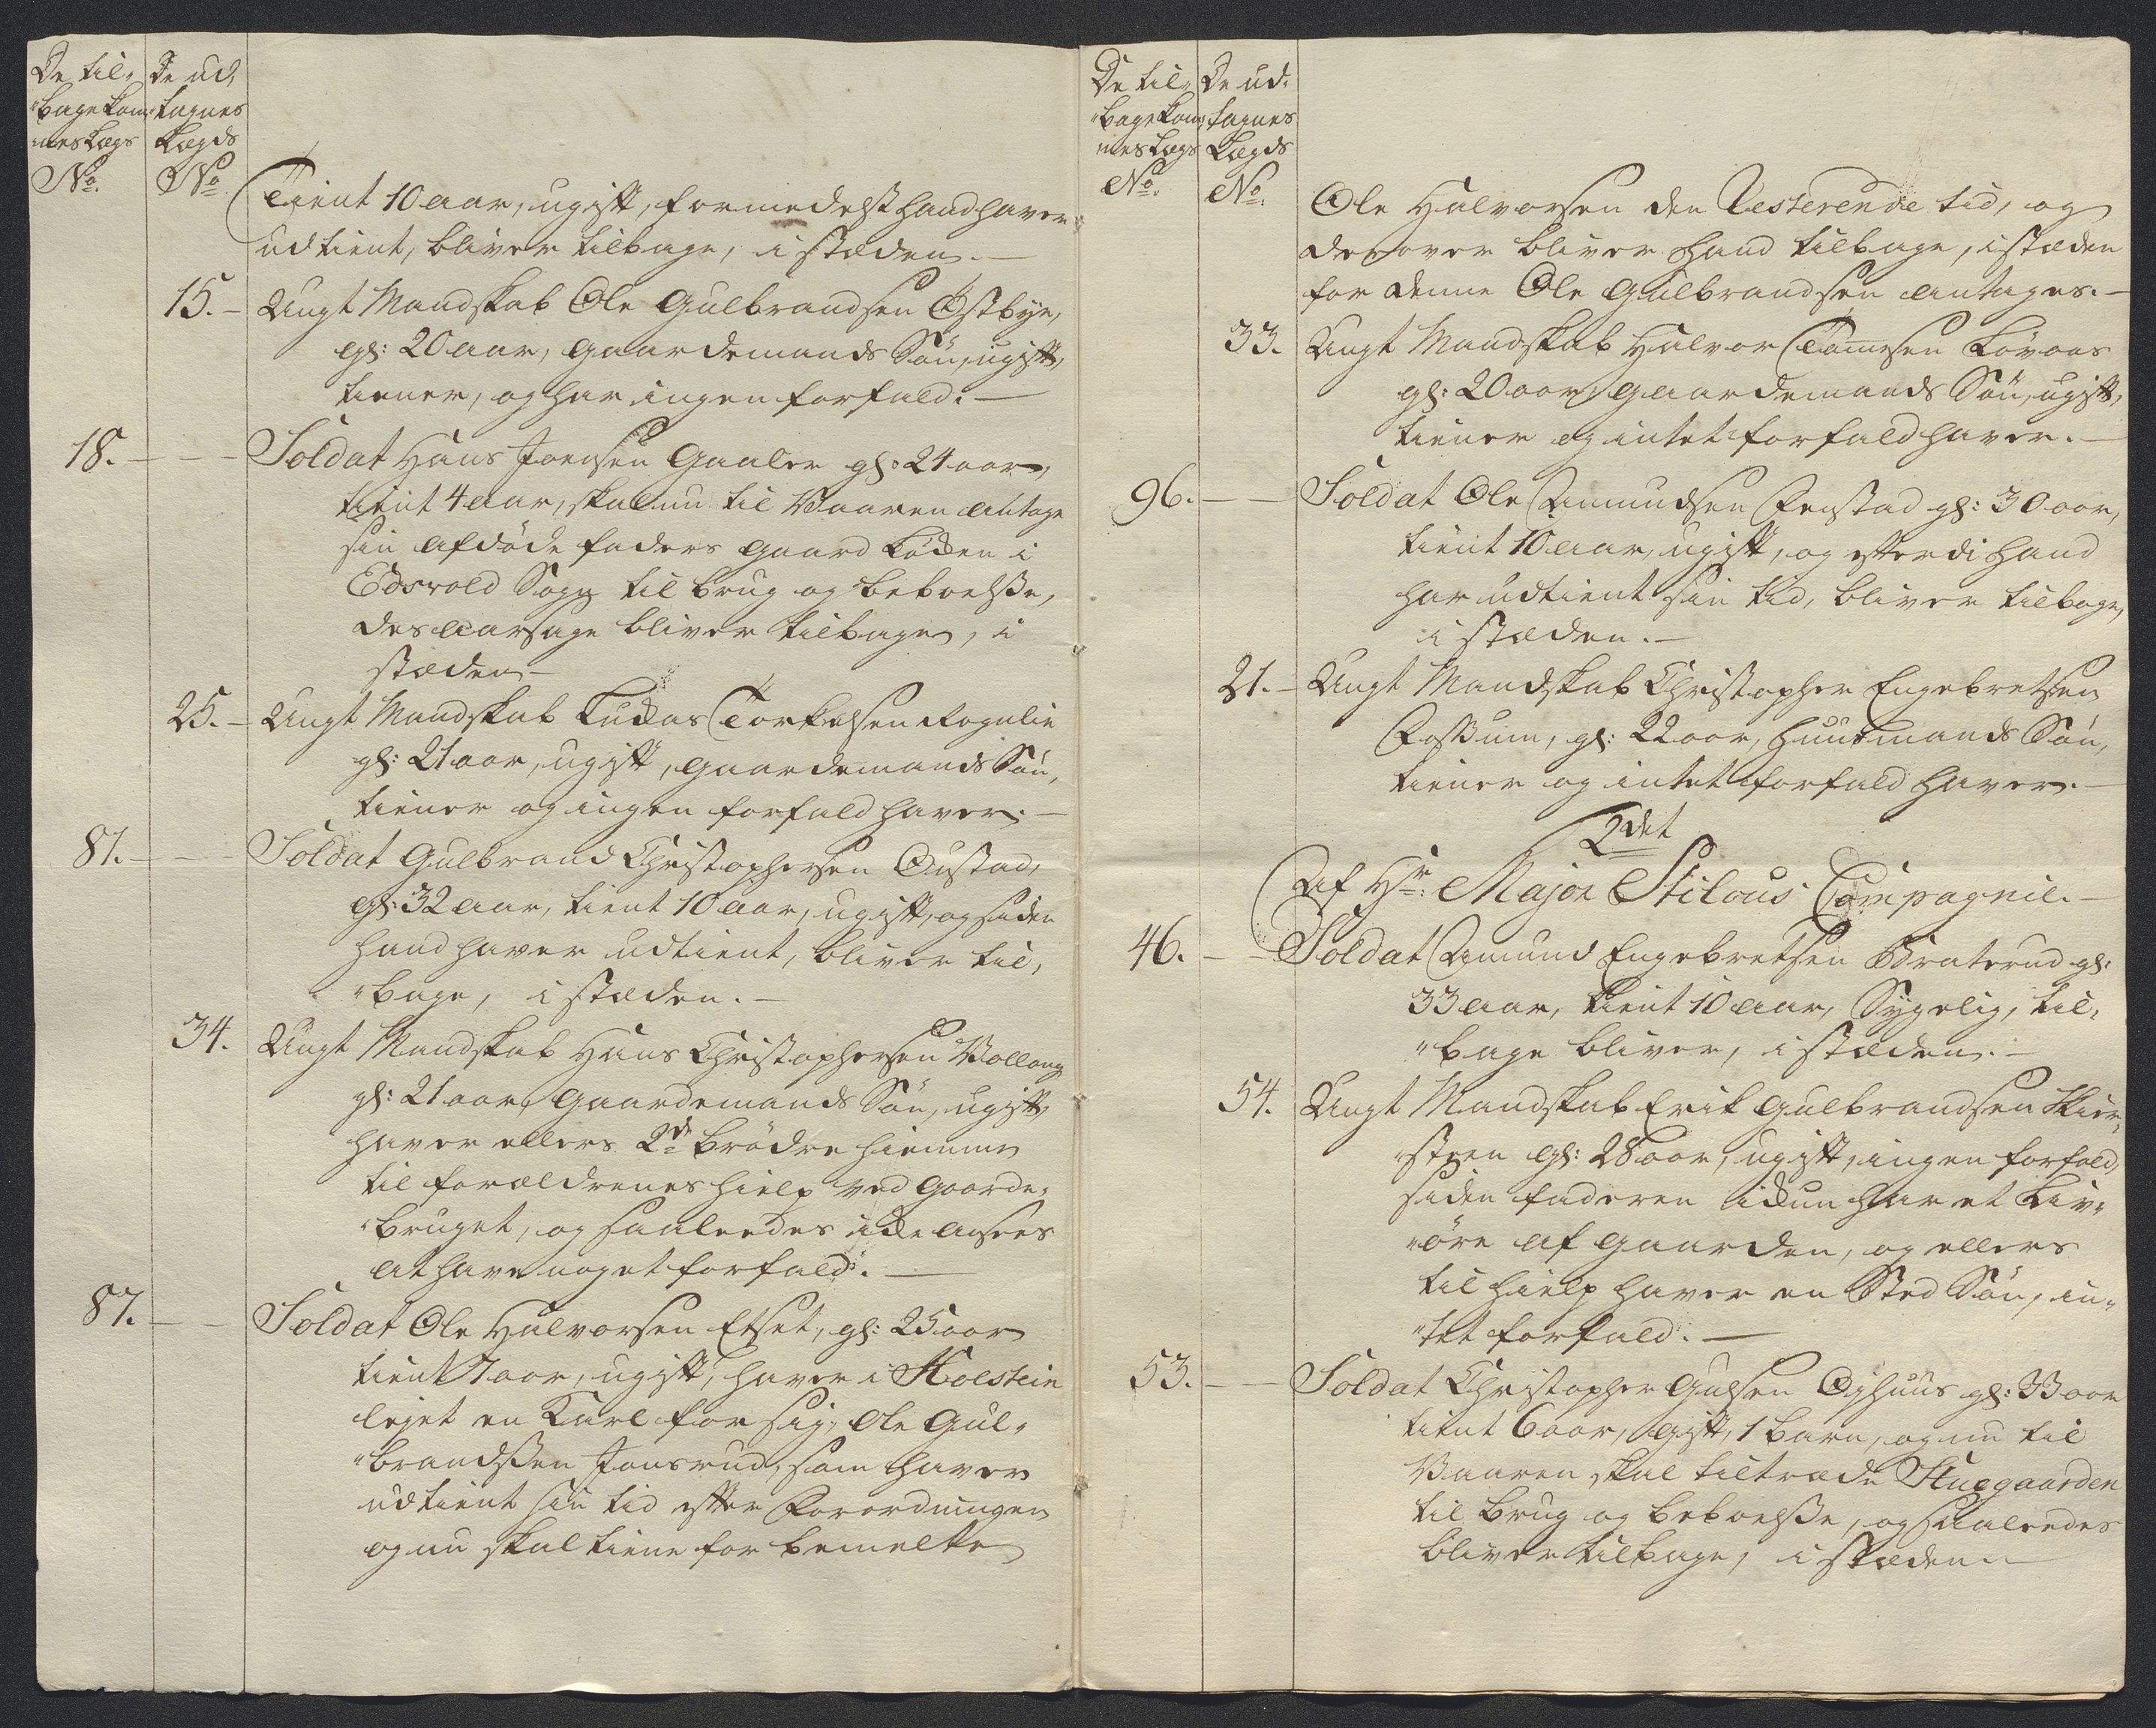 De til„
„bagekom„
nes Lægs
No.
De ud„
tagnes
Lægds
No.
Tient 10 aar, ugift, formedelst hand haver
udtient, bliver tilbage, i stæden.—
15.– Ungt Mandskab Ole Gulbrandsen Østbye,
gl: 20 aar, gaardemands Søn, ugift,
tiener, og har ingen forfald.—
18.– – Soldat Hans Joensen Gaaler gl: 24 aar,
tient 4 aar, skal nu til Vaaren antage
sin afdøde faders gaard Løken i
Edsvold Sogn til brug og beboelsse,
desaarsage bliver tilbage, i
stæden–
25.– Ungt Mandskab Luckas Torkelsen Rogulie
gl: 21 aar, ugift, gaardemands Søn,
tiener og ingen forfald haver.—
81.– – Soldat Gulbrand Christophersen Oustad,
gl: 32 aar, tient 10 aar, ugift, og siden
hand haver udtient, bliver til„
„bage, i stæden.–
34. Ungt Mandskab Hans Christophersen Vollaug
gl: 21 aar, Gaardemands Søn, ugift,
haver ellers 2de brødre hiemme
til forældrenes hielp ved Gaarde„
„bruget, og saaleedes icke ansees
at have noget forfald.—
87.– – Soldat Ole Halvorsen Etset, gl: 25 aar
tient 7 aar, ugift, haver i Holstein
lejet en Karl for sig, Ole Gul„
„brandssen Jonsrud, som haver
udtient sin tid efter Forordningen
og nu skal tiene for bemelte
De til„
„bagekom„
nes Lægs
No.
De ud„
tagnes
Lægds
No.
Ole Halvorsen den Resterende tid, og
derover bliver hand tilbage, i stæden
for denne Ole Gulbrandsen antages.–
33. Ungt Mandskab Halvor Tomesen Løvaas
gl: 20 aar, gaardemands Søn, ugift,
tiener og intet forfald haver.–
96.– – Soldat Ole Amundsen Fenstad gl: 30 aar,
tient 10 aar, ugift, og efterdi hand
har udtient sin tid, bliver tilbage,
i stæden.–
21.– Ungt Mandskab Christopher Engebretsen
Fossum, gl: 22 aar, Huusmands Søn,
tiener og intet forfald haver.–
2det
Af Hr: Major Stilous Compagnie.–
46.– – Soldat Amund Engebretsen Braterud gl:
33 aar, tient 10 aar, Sygelig, til„
„bage bliver, i stæden.–
54. Ungt Mandskab Erik Gulbrandsen Skier„
„steen gl: 28 aar, ugift, ingen forfald,
siden faderen ickun har et Liv„
„øre af gaarden, og ellers
til hielp haver en Sted Søn, in„
„tet forfald.—
53.– – Soldat Christopher Gulsen Ophuus gl: 33 aar
tient 6 aar, gift, 1 barn, og nu til
Vaaren skal tiltræde Huegaarden
til brug og beboelsse, og saaleedes
bliver tilbage, i stæden.–